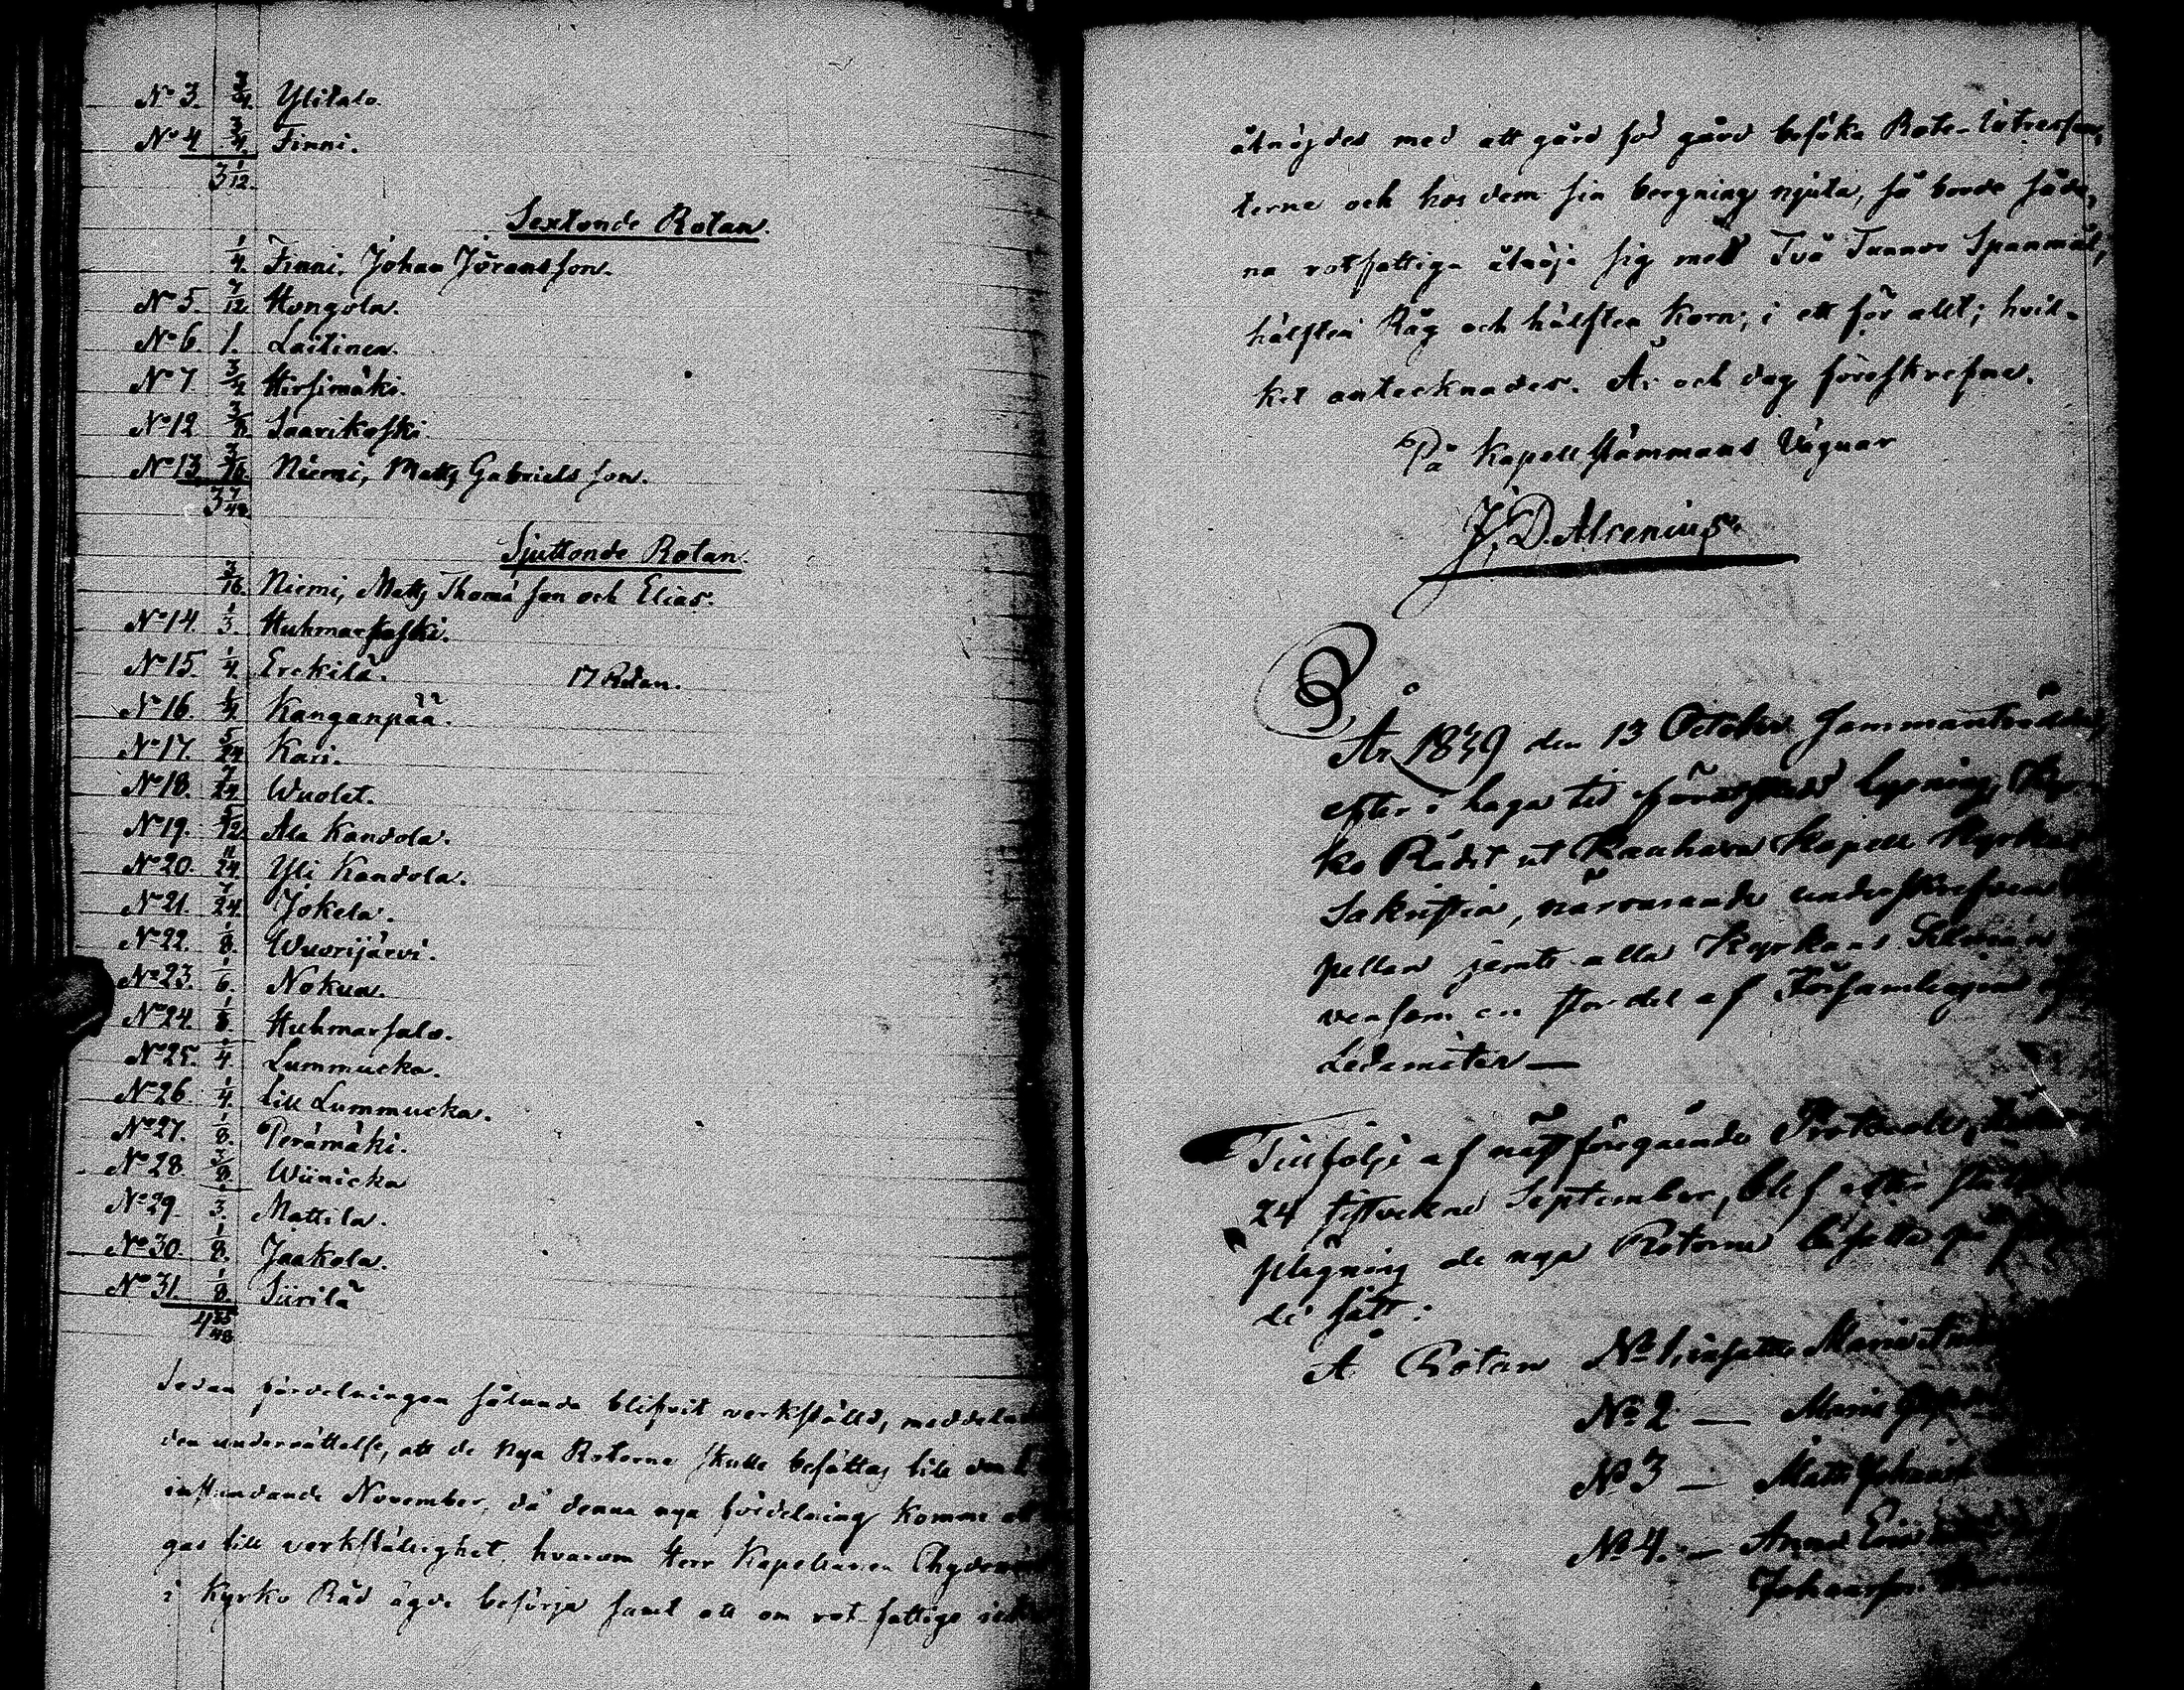 No 3. 3/4. Ylitalo.
No 4 3/4. Finni.
3 1/12.
Sextonde Rotan.
1/4. Finni, Johan Jöransson.
No 5. 7/12. Hongola.
No 6. 1. Laitinen.
No 7 Hirsimäki.
No 12 3/8. Saarikoski.
No 13. 3/16. Niemi, Matts Gabrielsson.
3 7/48.
Sjuttonde Rotan.
3/16. Niemi, Matts Thomæson och Elias.
No 14. 1/3. Huhmarkoski.
No 15. 1/4. Erckilä. 17 Rotan.
No 16. 1/4. Kanganpää.
No 17. 5/24 Kari.
No 18. 7/24. Wuolet.
No 19. 5/12. Ala Kandola.
No 20. 11/24. Yli Kandola.
No 21. 7/24. Jokela.
No 22. 1/8. Wuorijärvi.
No 23. 1/6. Nokua.
No 24. 1/8. Huhmarsalo.
No 25. 1/4. Lummucka.
No 26 1/4. Lill Lummucka.
No 27. 1/8. Perämäki.
No 28. 3/8. Wiinicka
No 29. 1/3. Mattila.
No 30. 1/8. Jaakola.
No 31. 1/8. Siirilä
4 35/48.
Sedan fördelningen sålunda blifvit verkställd, meddelades
den underrättelse, att de nya Rotorne skulle besättas till den
instundande November, då denna nya fördelning komme att
gas till verkställighet, hvarom Herr Kapellanen Chydenius
i Kyrko Råd ägde besörja samt att om rot-fattige icke
åtnöjdes med att gård från gård besöka Rote-Intressen,
terne och hos dem sin bergning njuta, så borde såda,
na rotfattiga åtnöja sig med Två Tunnor Spanmål,
hälften Råg och hälften Korn; i ett för allt; hvil-
ket antecknades. År och dag föreskrefne.
På Kapellstämmans Vägnar
J. D. Alcenius.
År 1839 den 13 October sammanträdde,
efter i laga tid lysning, Kyr-
ko Rådet ut Kauhava Kapell Kyrkas
Sakristia, närvarande underskrefven
pellan jemte alla Kyrkans
vensom en stor del af Församlingens
Ledamöter —
Till följe af nästföregående Protocoll,
24 sistvekne September, blef efter
plägning de nya Rotorne besatta på
de sätt:
Å Rotan No 1, insattes Maria
No 2 — Maria
No 3 — Matts
No 4. — Anna
Johansson